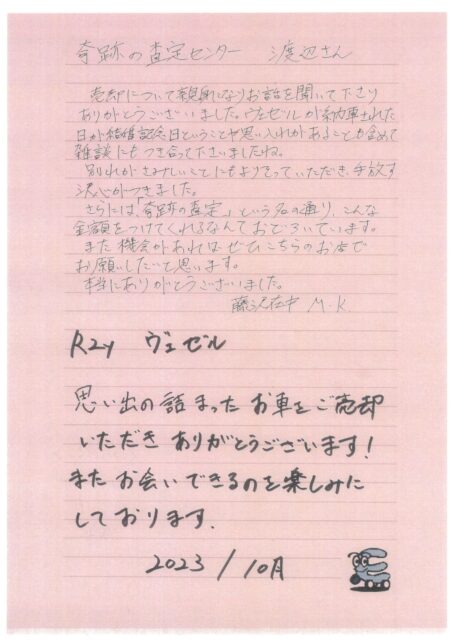 奇跡の査定センター 渡辺さん
売却について親身になりお話を聞いて下さり
ありがとうございました。ヴェゼルが納車された
日が結婚記念日ということや思い入れがあることも含めて
雑談にもつき合って下さいましたね。
別れがさみしいことにもよりそっていただき、手放す
決心がつきました。
さらには、「奇跡の査定」という名の通り、こんな
金額をつけてくれるなんておどろいています。
また機会があれば、ぜひこちらのお店で
お願いしたいと思います。
本当にありがとうございました。
藤沢在中 M.K
R2y ヴェゼル
思い出の詰まった お車をご売却
いただき ありがとうございます！
また お会いできるのを楽しみに
しております.
2023/10月